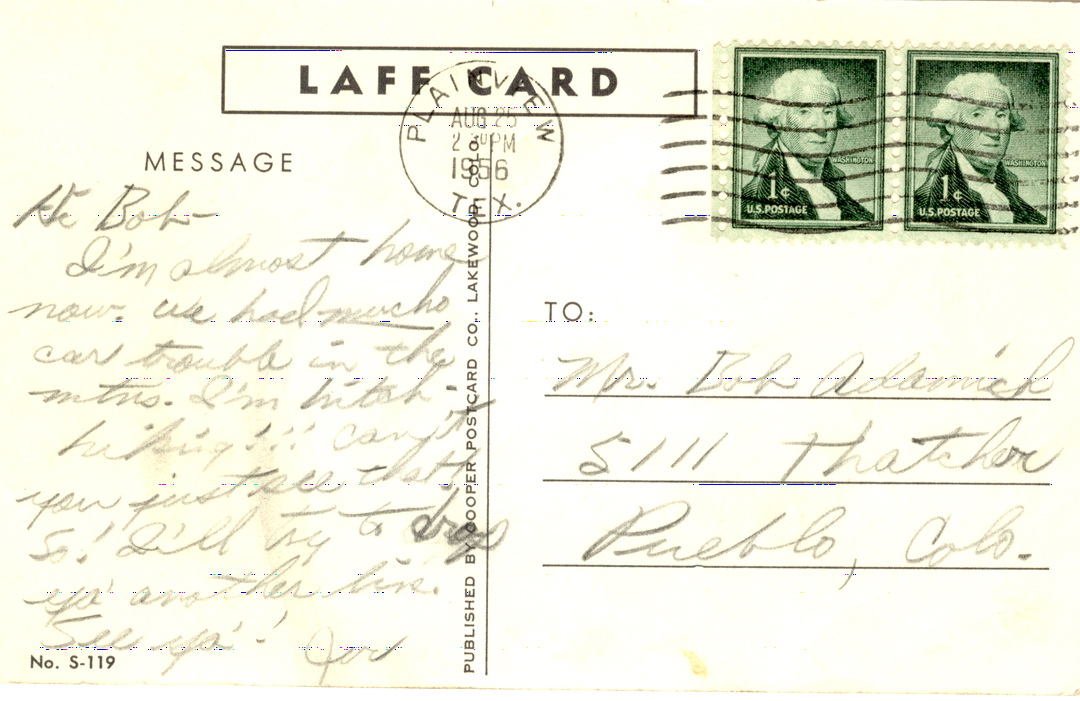 LAFF CARD
PLAINVIEW
AUG 25
2 30 PM
1956
TEX.
WASHINGTON
1¢
U.S. POSTAGE
WASHINGTON
1¢
U.S. POSTAGE
MESSAGE
Hi Bob-
I'm almost home
now. We had mucho
car trouble in the
mtns. I'm hitch
hiking!!! Can't
you just see that!
So! I'll try to drop
ya' another line.
See ya'!
No. S-119
PUBLISHED BY COOPER POSTCARD CO., LAKEWOOD, COLO.
TO:
Mr. Bob
5111 Thatcher
Pueblo, Colo.